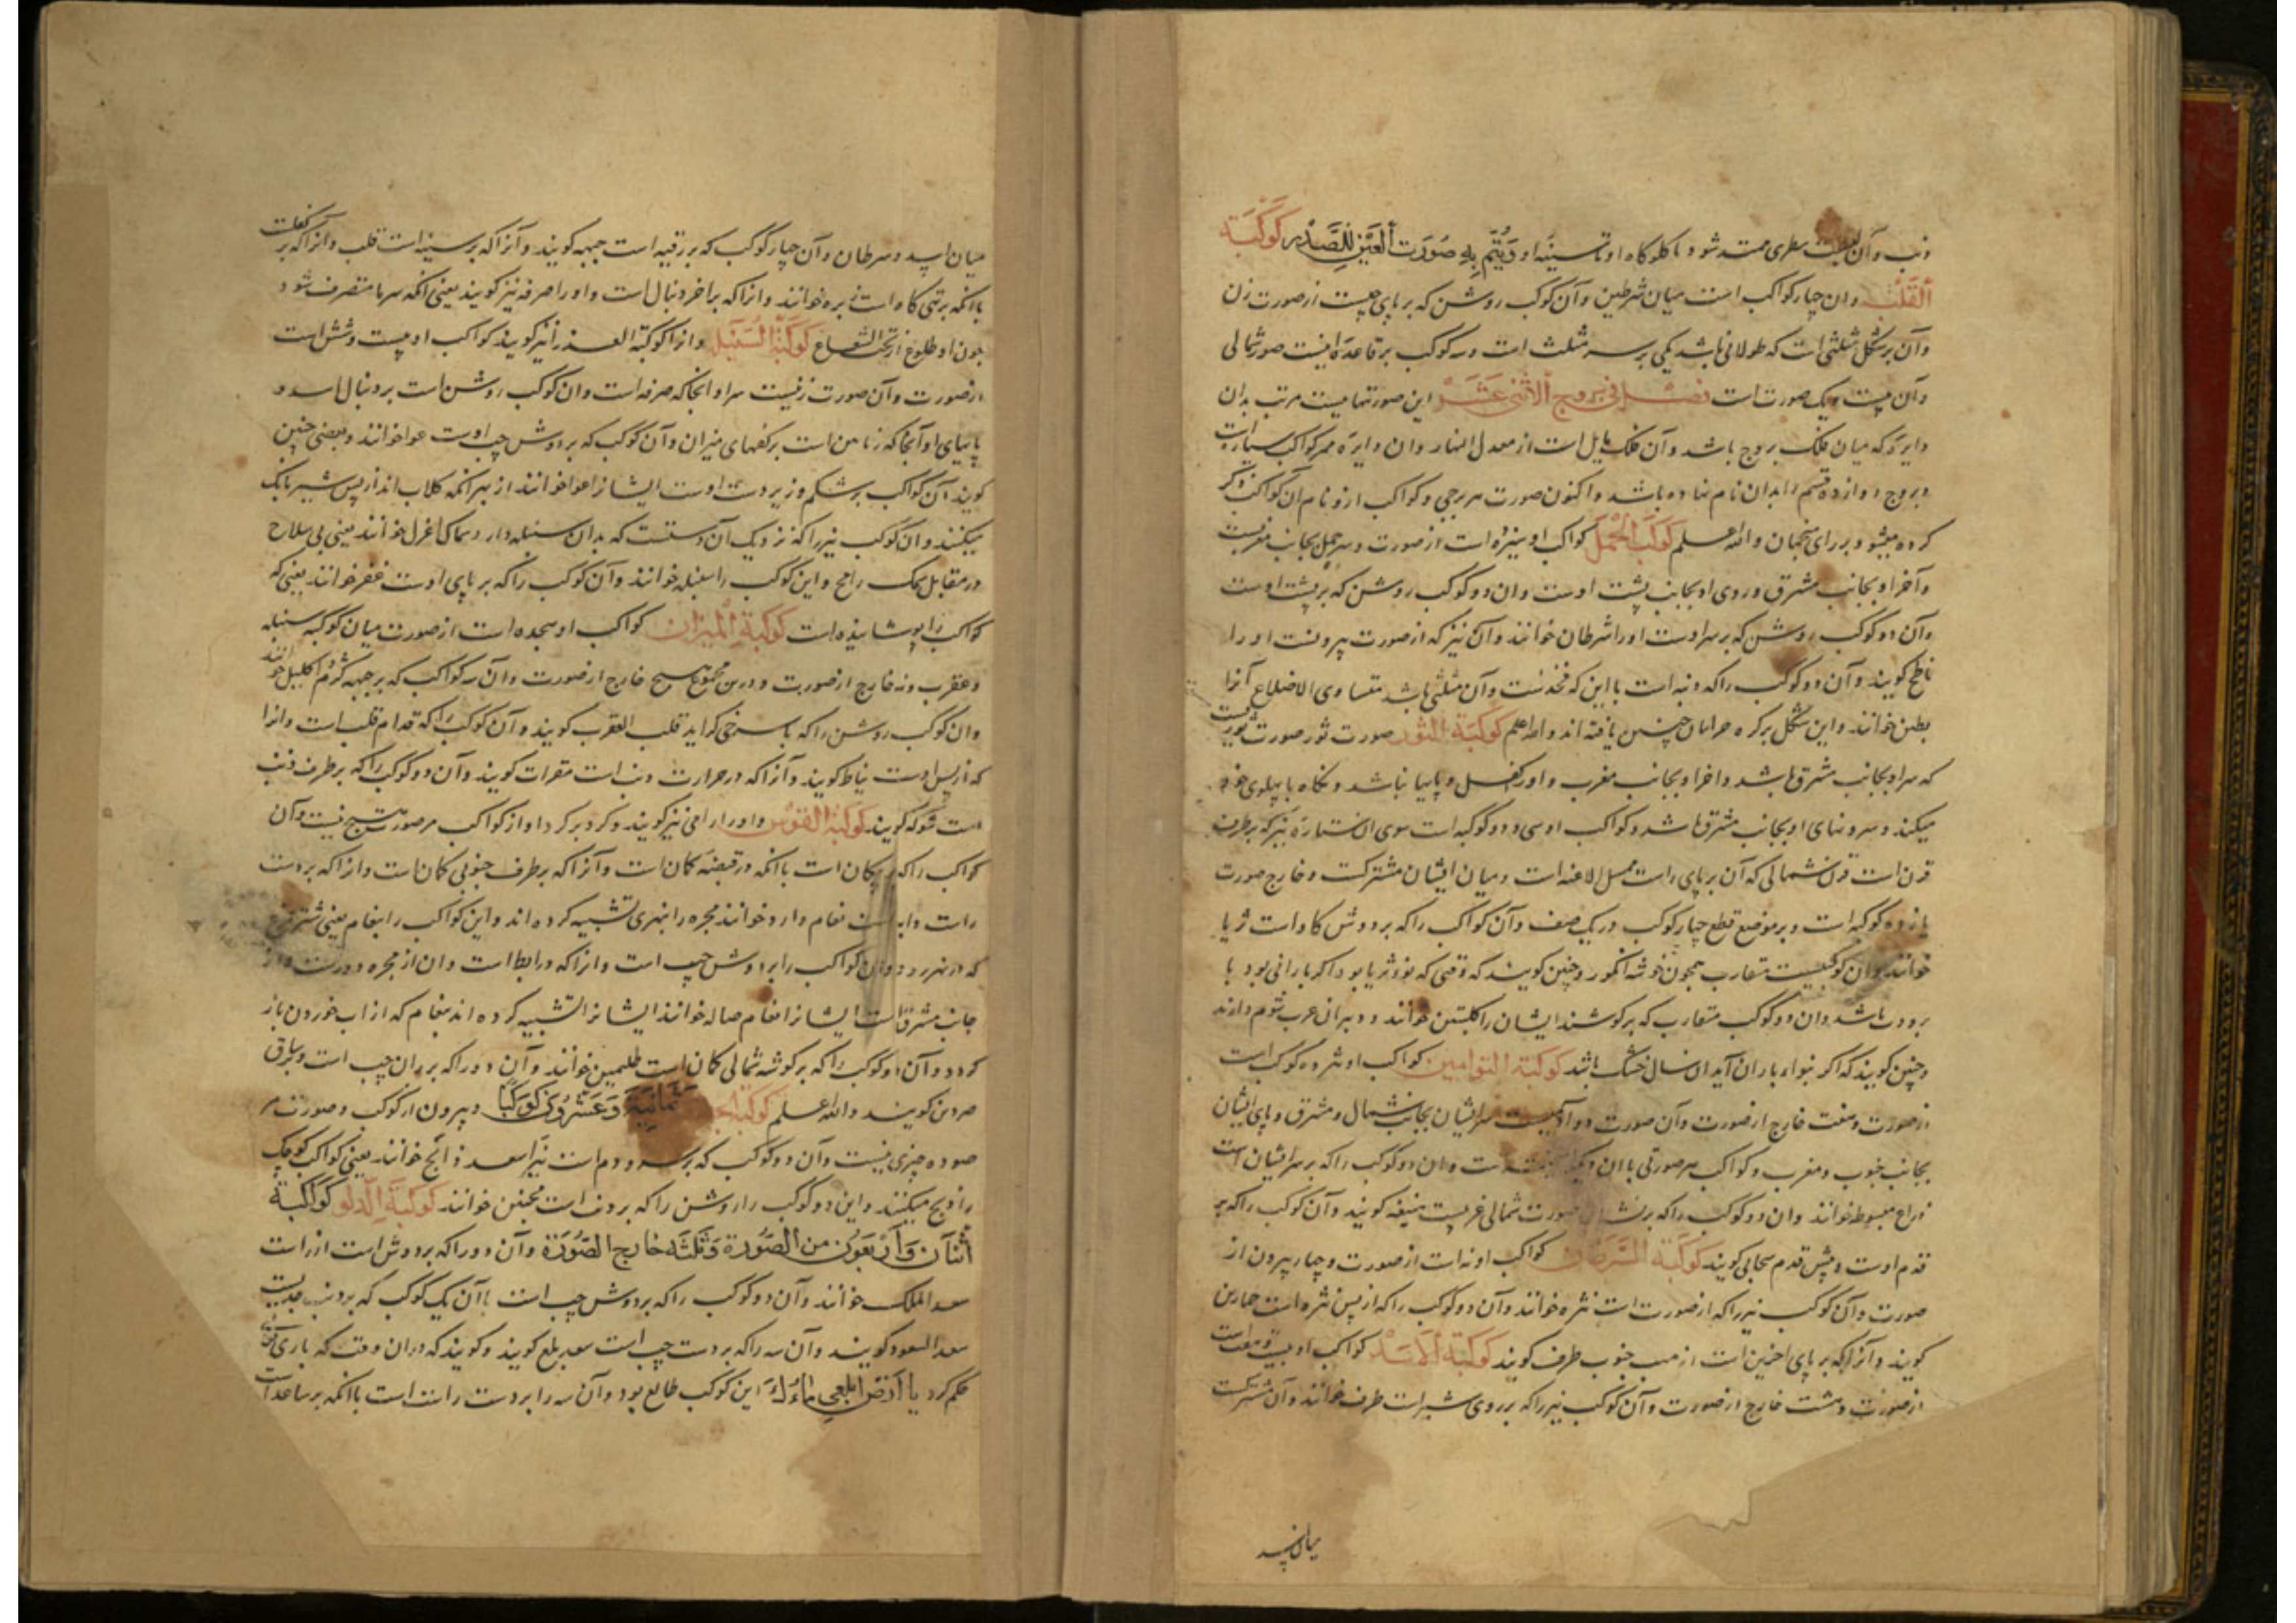 ذنب و آن سطری ممتد شود تا کلوکاه او تا سینه او وَیُتَمّ بِهِ صُورَت کَوکَبَة
القلب و ان چهار کواکب است میان شرطین و آن کوکب روشن که بر پای چپست از صورت زن
و آن بر شکل مثلثی است که طولانی باشد یکی بر سر مثلث است و سه کوکب بر قاعده اینست صور شمالی
و آن بیست و یک صورت است فصل فی بروج الاثنی عشر این صورتهاییست مرتب بدان
دایره که میان فلک بروج باشد و آن فلک مایل است از معدل النهار و ان دایره ممر کواکب سیارات
و بروج دوازده قسم را بدان نام نهاده باشد و اکنون صورت هر برجی و کواکب او و نام آن کواکب ذکر
کرده میشود بر رای منجمان والله اعلم کوکبة الحمل کواکب او سیزده است از صورت و سر حمل بجانب مغربست
و آخر او بجانب مشرق و روی او بجانب پشت اوست و ان دو کوکب روشن که بر پشت اوست
و آن دو کوکب روشن که بر سر اوست او را شرطان خوانند و آن نیز که از صورت بیرونست او را
ناطح کویند و آن دو کوکب را که دنبه است با این که فخذست و آن مثلثی باشد متساوی الاضلاع آنرا
بطین خوانند و این شکل بر کره چنین یافته اند والله اعلم کوکبة الثور صورت ثور صورت ثوریست
که سر او بجانب مشرق باشد و اخر او بجانب مغرب و او را کفل و پایها نباشد و نکاه با پهلوی خود
میکند و سروهای او بجانب مشرق باشد و کواکب او سی و دو کوکبه است سوی ان ستاره نیز که بر طرف
قرن است قرن شمالی که آن بر پای راست ممسک الاعنه است و میان ایشان مشترکست و خارج صورت
یازده کوکبه است و بر موضع قطع چهار کوکب در یک صف و آن کواکب را که بر دوش کاو است ثریا
خوانند و ان کوکبیست متقارب همچون خوشه انکور و چنین کویند که وقتی که نوء ثریا بود اکر بارانی بود با
برودت باشد و ان دو کوکب متقارب که بر کوشند ایشان را کلبتین خوانند و دبران عرب شوم دارند
و چنین کویند که اکر بنواء باران آید ان سال خشک باشد کوکبة التوامین کواکب او شرده کوکب است
از صورت و هفت خارج از صورت و آن صورت دو آدمیست سر ایشان بجانب شمال و مشرق و پای ایشان
بجانب جنوب و مغرب و کواکب هر صورتی با ان و ان دو کوکب را که بر سر ایشان است
ذراع مبسوطه خوانند و ان دو کوکب را که بر صورت شمالی غربیست هنیغه کویند و آن کوکب را که بر
قدم اوست و پیش قدم کویند کوکبة السرطان کواکب او نه است از صورت و چهار بیرون از
صورت و آن کوکب نیر را که از صورت است نثره خوانند و آن دو کوکب را که از پس نثره است حمارین
کویند و آنرا که بر پای اخرین است از سمت جنوب طرف کویند کوکبة الاسد کواکب او بیست و هفت است
از صورت و هشت خارج از صورت و آن کوکب نیر را که بر روی شیر است طرف خوانند و آن مشترکست
میان اسد
میان اسد و سرطان و آن چهار کوکب که بر رقبه است جبهه کویند و آنرا که بر سینه است قلب و آنرا که بر کفلست
با انکه بر تهی کاه است زبره خوانند و انرا که بر اخر دنبال است و او را صرفه نیز کویند یعنی انکه سرما منصرف شود
چون او طلوع از تحت الشعاع کوکبة السنبله و انرا کوکبة العذرا نیز کویند کواکب او بیست و شش است
از صورت و آن صورت زنیست سر او انجا که صرفه است و ان کوکب روشن است بر دنبال اسد و
پایهای او آنجا که زبانین است بر کفهای میزان و آن کوکب که بر دوش چپ اوست عوا خوانند و بعضی چنین
کویند آن کواکب بر شکم و زیر دست اوست ایشانرا عوا خوانند از بهر انکه کلاب اند از پس شیر بانک
میکنند و ان کوکب نیر را که نزدیک آن دستست که بدان سنبله دارد سماک اعزل خوانند یعنی بی سلاح
در مقابل سماک رامح و این کوکب را سنبله خوانند و آن کوکب را که بر پای اوست غفر خوانند یعنی که
کواکب را پوشانیده است کوکبة المیزان کواکب او هجده است از صورت میان کوکبه سنبله
و عقرب و نه خارج از صورت و درین مجموع هیچ خارج از صورت و آن سه کواکب که بر جبهه کژدم اکلیل خوانند
و ان کوکب روشن را که با سرخی کراید قلب العقرب کویند و آن کوکب را که قدام قلب است و انرا
که از پس اوست نیاط کویند و آنرا که در حرارت ذنب است فقرات کویند و آن دو کوکب را که بر طرف ذنب
است شوله کویند کوکبة القوس و او را رامی نیز کویند و کرد بر کرد او از کواکب مر صورتش هیچ نیست و آن
کواکب را که پیکان است با انکه در قبضه کمان است و آنرا که بر طرف جنوبی کمان است و انرا که بر دست
راست نعام وارد خوانند مجره را بنهری تشبیه کرده اند و این کواکب را بنعام یعنی شترمرغ
که در نهر رود و ان کواکب را بر دوش چپ است و انرا که در ابط است و ان از مجره دورست و از
جانب مشرق است ایشانرا نعام صادره خوانند ایشانرا تشبیه کرده اند بنعام که از اب خوردن باز
کردد و آن دو کوکب را که بر کوشه شمالی کمان است ظلیمین خوانند و آن دو را که بر ران چپ است و بر ساق
صردین کویند والله اعلم کوکبة الجدی ثَمانِیَة وَعَشرُونَ کَوکَبًا و بیرون از کوکب و صورت مر
صوده چیزی نیست و آن دو کوکب که بر سرو دوم است نیر را سعد ذابح خوانند یعنی کواکب کوچک
را ذبح میکنند و این دو کوکب را روشن را که بر ذنب است محبین خوانند کوکبة الدلو کَوَاکِبُهُ
اثنان وَاَربَعُونَ من الصُّورَة وَثَلثَه خارج الصُّورَة و آن دو را که بر دوش است از راست
سعد الملک خوانند و آن دو کوکب را که بر دوش چپ است با آن یک کوکب که بر ذنب جدیست
سعد السعود کویند و آن سه را که بر دست چپ است سعد بلع کویند و کویند که در ان وقت که باری تعالی
حکم کرد یا اَرضُ ابلَعِی مَاءَكِ این کوکب طالع بود و آن سه را بر دست راست است با انکه بر ساعد است